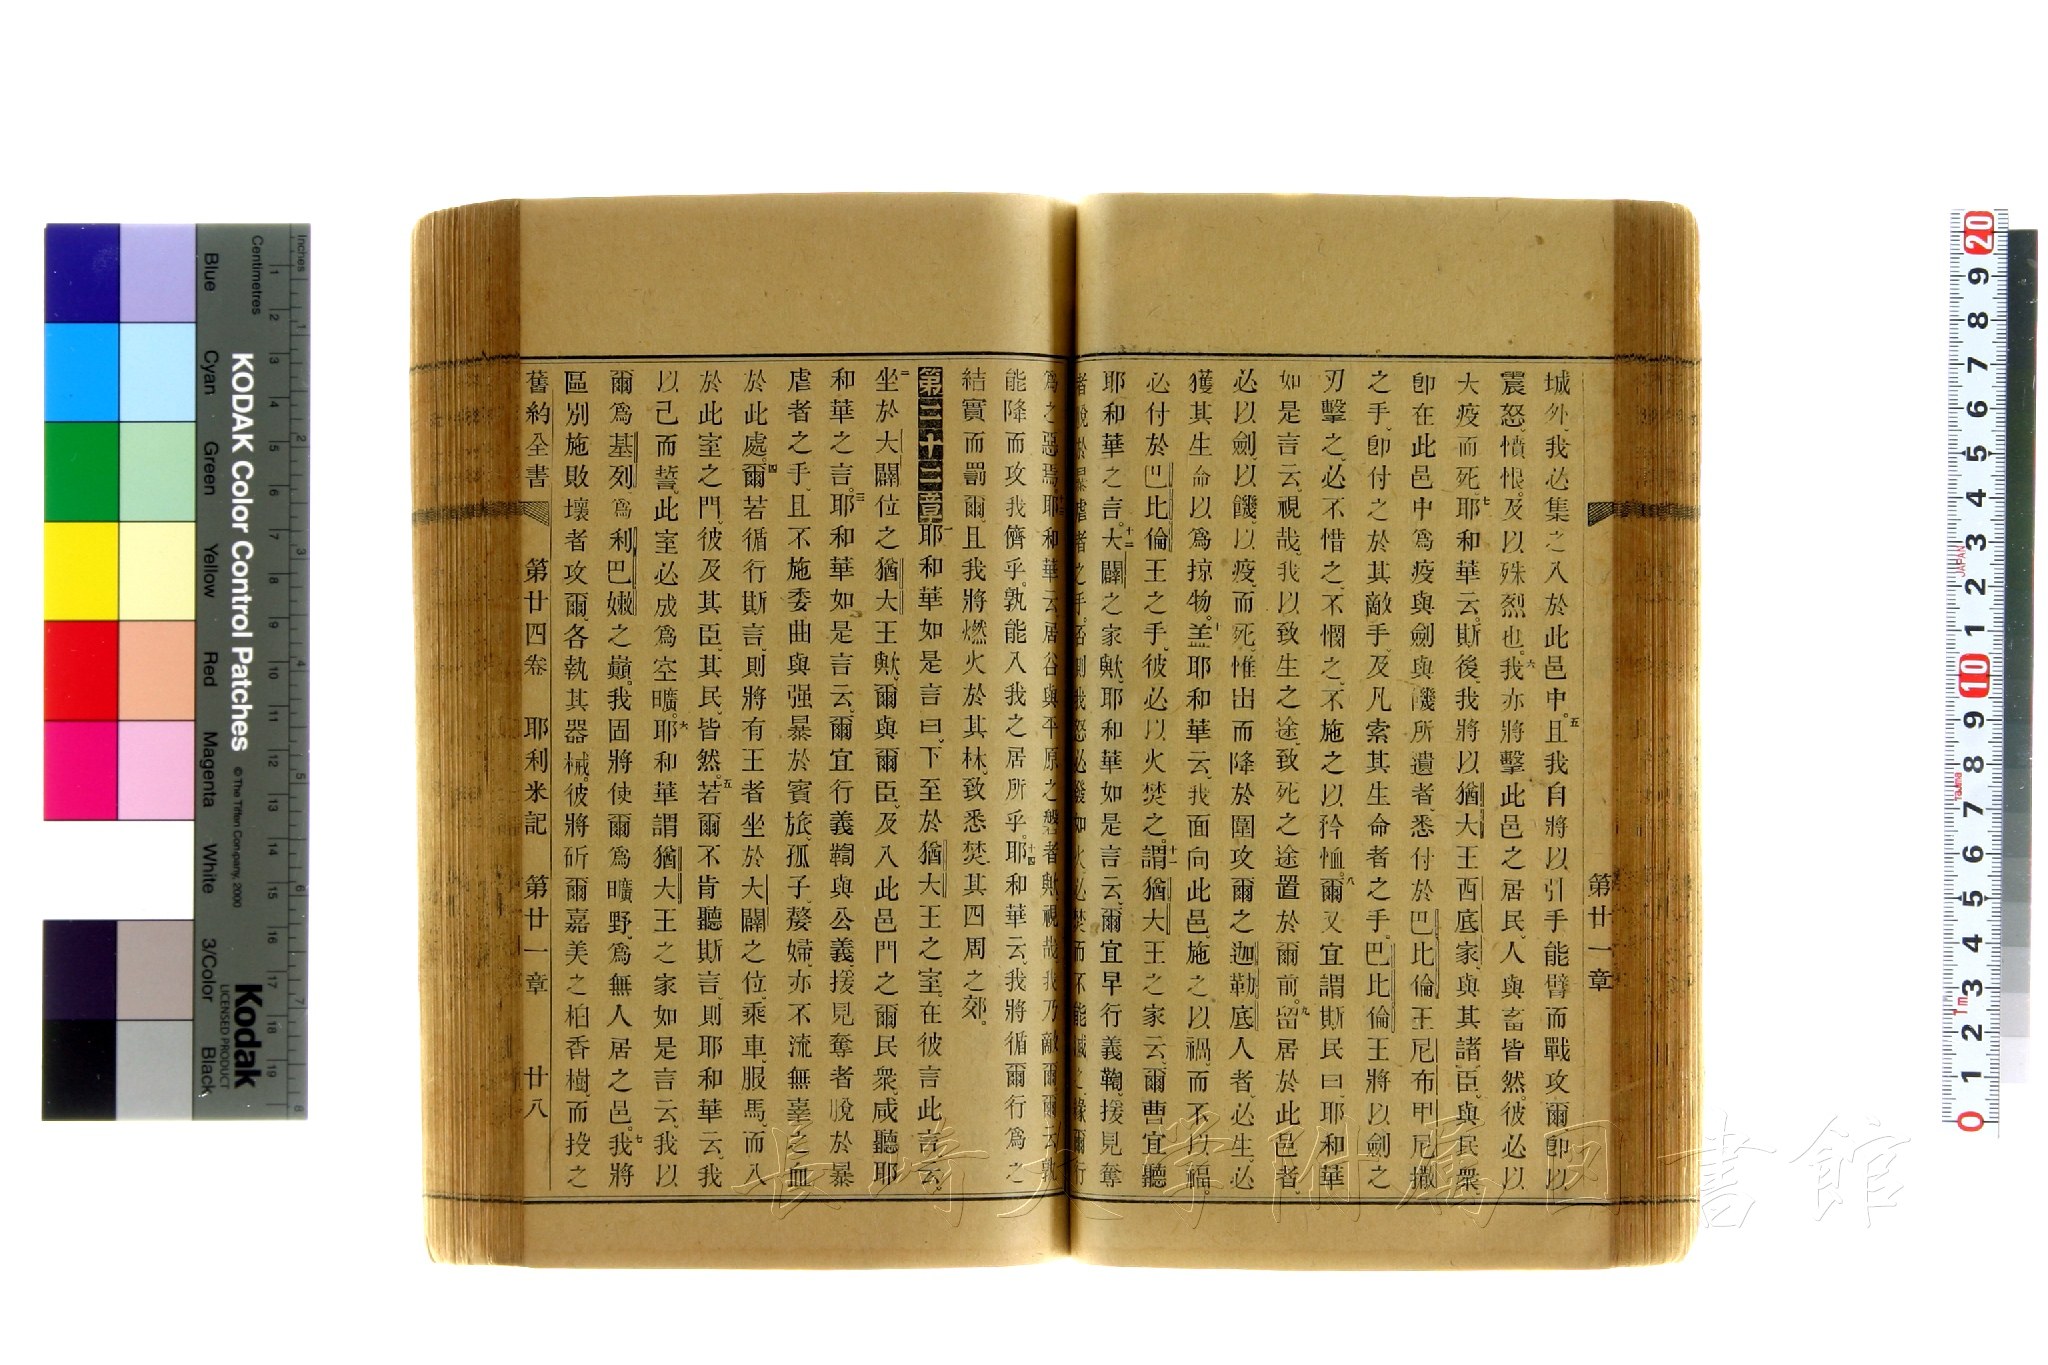 第廿一章
城外、我必集之入於此邑中。五且我自將以引手能臂而戰攻爾、卽以
震怒、憤恨、及以殊烈也。六我亦將擊此邑之居民、人與畜皆然。彼必以
大疫而死。七耶和華云、斯後、我將以猶大王西底家、與其諸臣、與民衆、
卽在此邑中爲疫與劍與饑所遺者、悉付於巴比倫王尼布甲尼撒
之手、卽付之於其敵手、及凡索其生命者之手。巴比倫王將以劍之
刃擊之、必不惜之、不憫之、不施之以矜恤。八爾又宜謂斯民曰、耶和華
如是言云、視哉、我以致生之途、致死之途置於爾前。九留居於此邑者、
必以劍、以饑、以疫、而死、惟出而降於圍攻爾之迦勒底人者、必生、必
獲其生命以爲掠物。十盖耶和華云、我面向此邑、施之以禍、而不以福。
必付於巴比倫王之手、彼必以火焚之。十一謂猶大王之家云、爾曹宜聽
耶和華之言。十二大闢之家歟、耶和華如是言云、爾宜早行義鞫、援見奪
者脫於暴虐者之手。否則我怒必發如火、必焚而不能滅之、緣爾行
爲之惡焉。十三耶和華云、居谷與平原之磐者歟、視哉、我乃敵爾、爾云、孰
能降而攻我儕乎。孰能入我之居所乎。十四耶和華云、我將循爾行爲之
結實而罰爾、且我將燃火於其林、致悉焚其四周之郊。
第二十二章一耶和華如是言曰、下至於猶大王之室、在彼言此言云。
二坐於大闢位之猶大王歟、爾與爾臣、及入此邑門之爾民衆、咸聽耶
和華之言。三耶和華如是言云、爾宜行義鞫與公義、援見奪者脫於暴
虐者之手、且不施委曲與强暴於賓旅、孤子、嫠婦、亦不流無辜之血
於此處。四爾若循行斯言、則將有王者坐於大闢之位、乘車服馬、而入
於此室之門、彼及其臣、其民、皆然。五若爾不肯聽斯言、則耶和華云、我
以己而誓、此室必成爲空曠。六耶和華謂猶大王之家如是言云、我以
爾爲基列、爲利巴嫩之巔。我固將使爾爲曠野、爲無人居之邑。七我將
區別施敗壞者攻爾、各執其器械。彼將斫爾嘉美之柏香樹、而投之
舊約全書 第廿四卷 耶利米記 第廿一章 廿八
長崎大学附属図書館
Inches
Centimetres
KODAK Color Control Patches
© The Tiffen Company, 2000
Kodak
LICENSED PRODUCT
Blue Cyan Green Yellow Red Magenta White 3/Color Black